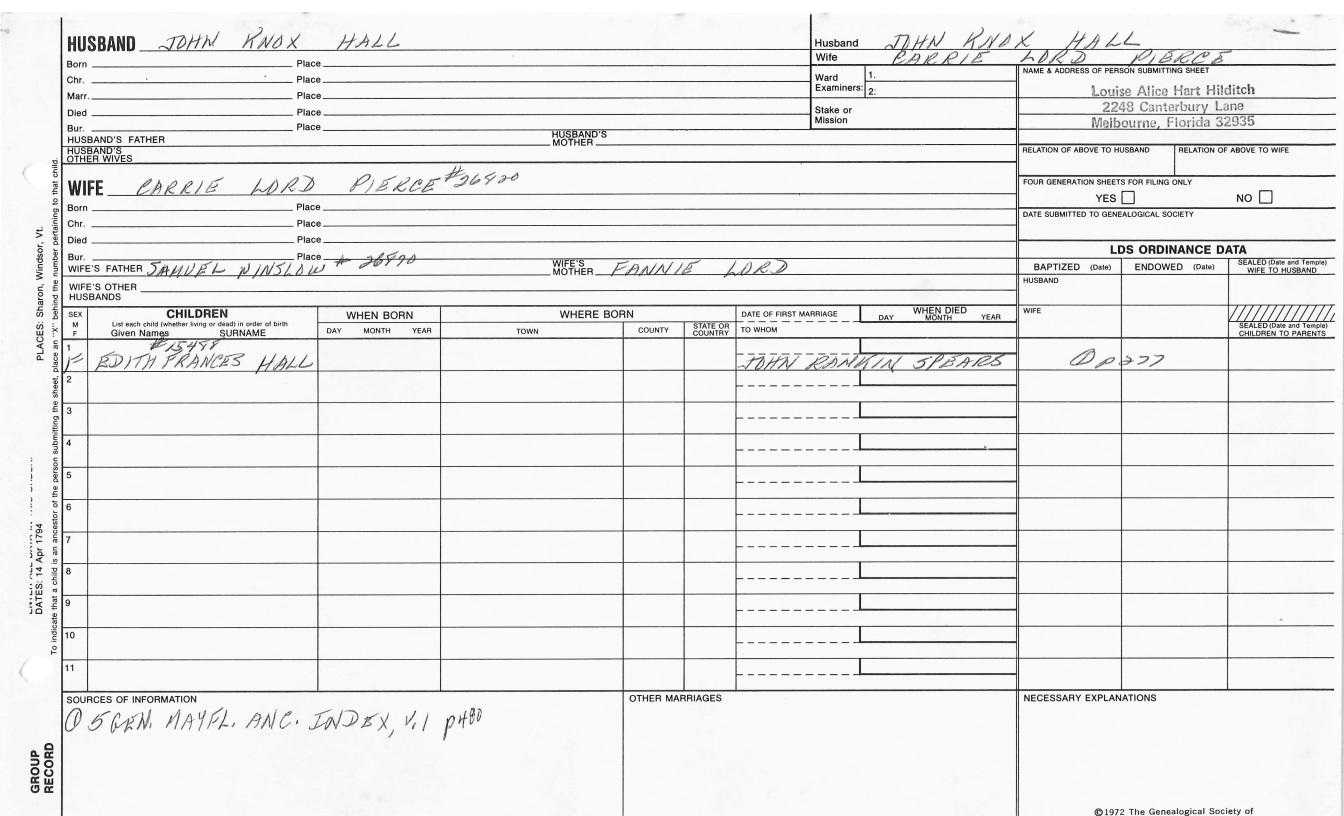 HUSBAND JOHN KNOX HALL
Born Place
Chr. Place
Marr. Place
Died Place
Bur. Place
HUSBAND'S FATHER HUSBAND'S MOTHER
HUSBAND'S OTHER WIVES
Husband JOHN KNOX HALL
Wife CARRIE LORD PIERCE
Ward Examiners: 1.
2.
Stake or Mission
NAME & ADDRESS OF PERSON SUBMITTING SHEET
Louise Alice Hart Hilditch
2248 Canterbury Lane
Melbourne, Florida 32935
RELATION OF ABOVE TO HUSBAND RELATION OF ABOVE TO WIFE
FOUR GENERATION SHEETS FOR FILING ONLY
YES NO
DATE SUBMITTED TO GENEALOGICAL SOCIETY
WIFE CARRIE LORD PIERCE
Born Place
Chr. Place
Died Place
Bur. Place
WIFE'S FATHER SAMUEL WINSLOW WIFE'S MOTHER FANNIE LORD
WIFE'S OTHER HUSBANDS
LDS ORDINANCE DATA
BAPTIZED (Date) ENDOWED (Date) SEALED (Date and Temple) WIFE TO HUSBAND
HUSBAND
WIFE
SEALED (Date and Temple) CHILDREN TO PARENTS
SEX M F
CHILDREN
List each child (whether living or dead) in order of birth
Given Names SURNAME
WHEN BORN
DAY MONTH YEAR
WHERE BORN
TOWN COUNTY STATE OR COUNTRY
DATE OF FIRST MARRIAGE
TO WHOM
WHEN DIED
DAY MONTH YEAR
1
F EDITH FRANCES HALL JOHN RANKIN SPEARS ① p277
2
3
4
5
6
7
8
9
10
11
SOURCES OF INFORMATION
① 5 GEN. MAYFL. ANC. INDEX, V.1 p480
OTHER MARRIAGES
NECESSARY EXPLANATIONS
©1972 The Genealogical Society of
PLACES: Sharon, Windsor, Vt.
DATES: 14 Apr 1794
To indicate that a child is an ancestor of the person submitting the sheet, place an "X" behind the number pertaining to that child.
GROUP
RECORD